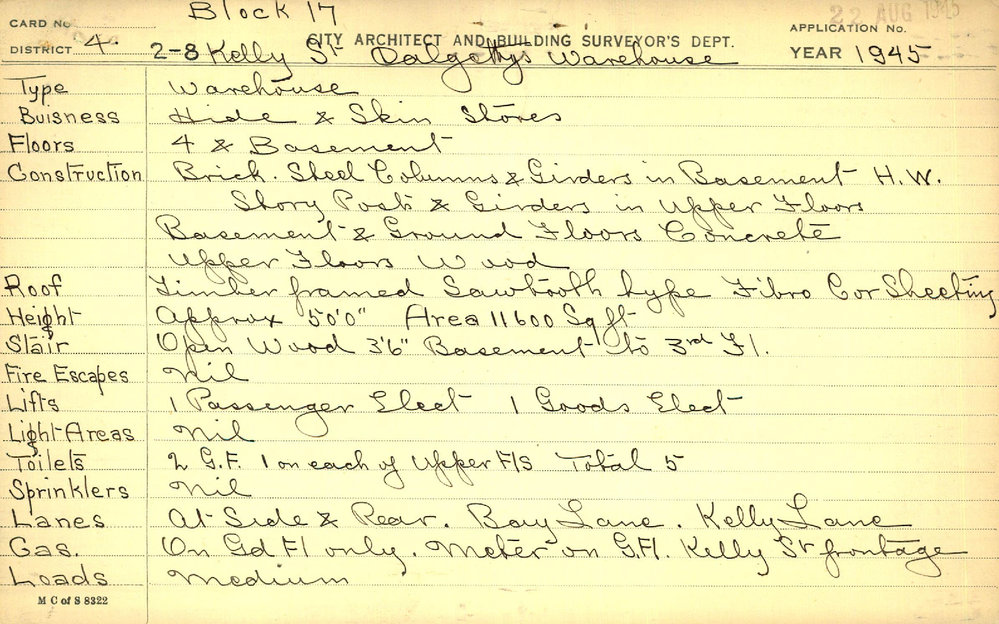 Block 17
22 AUG 1945
CARD No.
CITY ARCHITECT AND BUILDING SURVEYOR'S DEPT.
APPLICATION No.
DISTRICT 4. 2-8 Kelly St Dalgettys Warehouse YEAR 1945
Type Warehouse
Buisness Hide & Skin Stores
Floors 4 & Basement
Construction Brick. Steel Columns & Girders in Basement H.W.
Story Posts & Girders in Upper Floors
Basement & Ground Floors Concrete
Upper Floors Wood
Roof Timber framed Sawtooth type Fibro Cor Sheeting
Height Approx 50'0" Area 11600 Sq ft
Stair Open Wood 3'6" Basement to 3rd Fl.
Fire Escapes Nil
Lifts 1 Passenger Elect 1 Goods Elect
Light Areas Nil
Toilets 2 G.F. 1 on each of Upper F/s Total 5
Sprinklers Nil
Lanes At Side & Rear. Bay Lane. Kelly Lane
Gas. On Gd Fl only. Meter on G.Fl. Kelly St frontage
Loads Medium
M C of S 8322